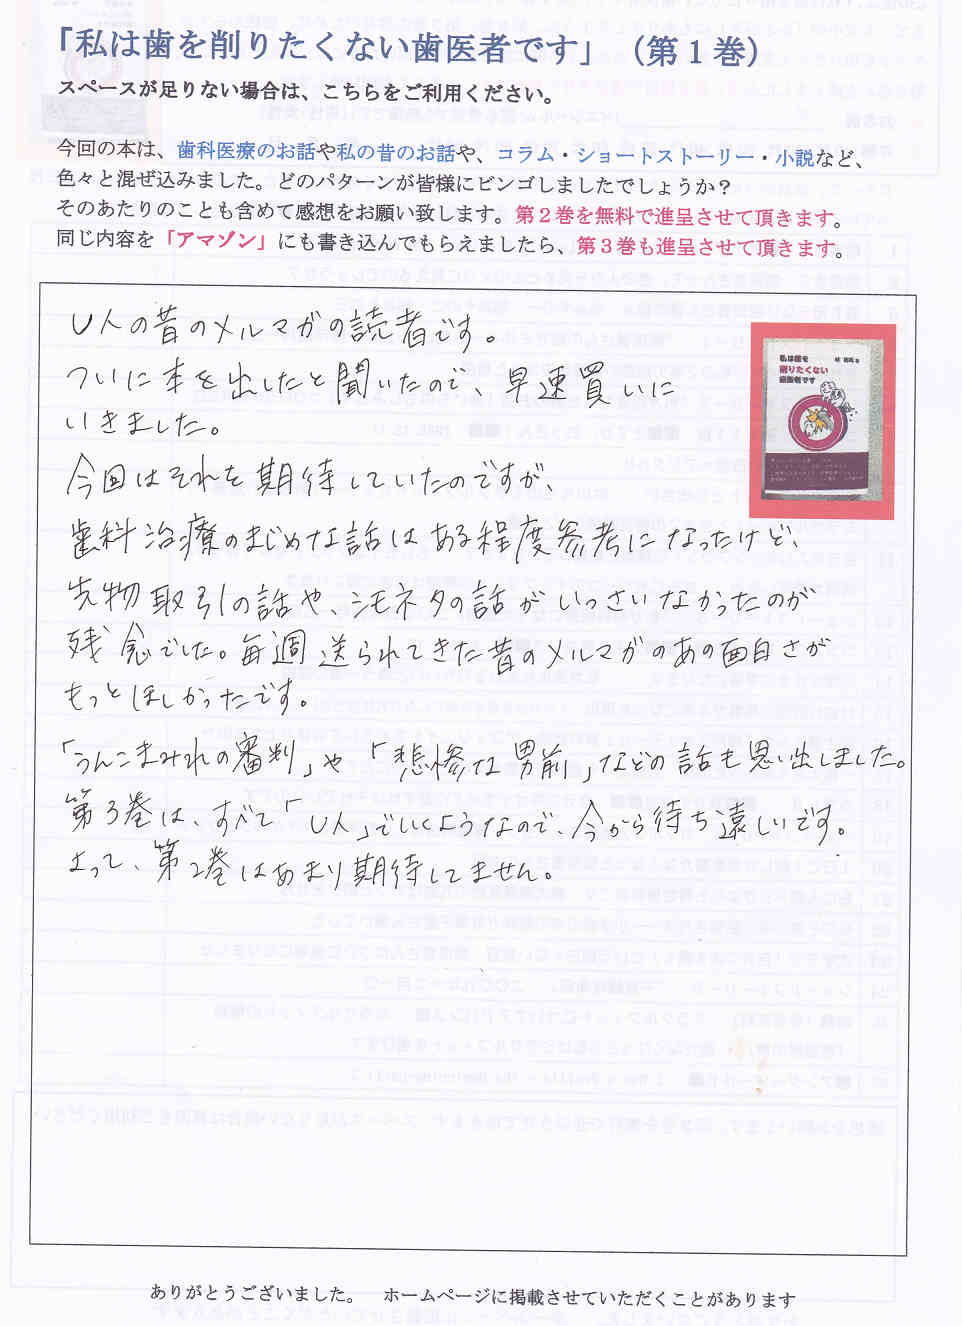 「私は歯を削りたくない歯医者です」（第１巻）
スペースが足りない場合は、こちらをご利用ください。
今回の本は、歯科医療のお話や私の昔のお話や、コラム・ショートストーリー・小説など、
色々と混ぜ込みました。どのパターンが皆様にビンゴしましたでしょうか？
そのあたりのことも含めて感想をお願い致します。第２巻を無料で進呈させて頂きます。
同じ内容を「アマゾン」にも書き込んでもらえましたら、第３巻も進呈させて頂きます。
U人の昔のメルマガの読者です。
ついに本を出したと聞いたので、早速買いに
いきました。
今回はそれを期待していたのですが、
歯科治療のまじめな話はある程度参考になったけど、
先物取引の話や、シモネタの話がいっさいなかったのが
残念でした。毎週送られてきた昔のメルマガのあの面白さが
もっとほしかったです。
「うんこまみれの審判」や「悲惨な男前」などの話も思い出しました。
第3巻は、すべて「U人」でいくようなので、今から待ち遠しいです。
よって、第2巻はあまり期待してません。
私は歯を
削りたくない
歯医者です
ありがとうございました。　ホームページに掲載させていただくことがあります